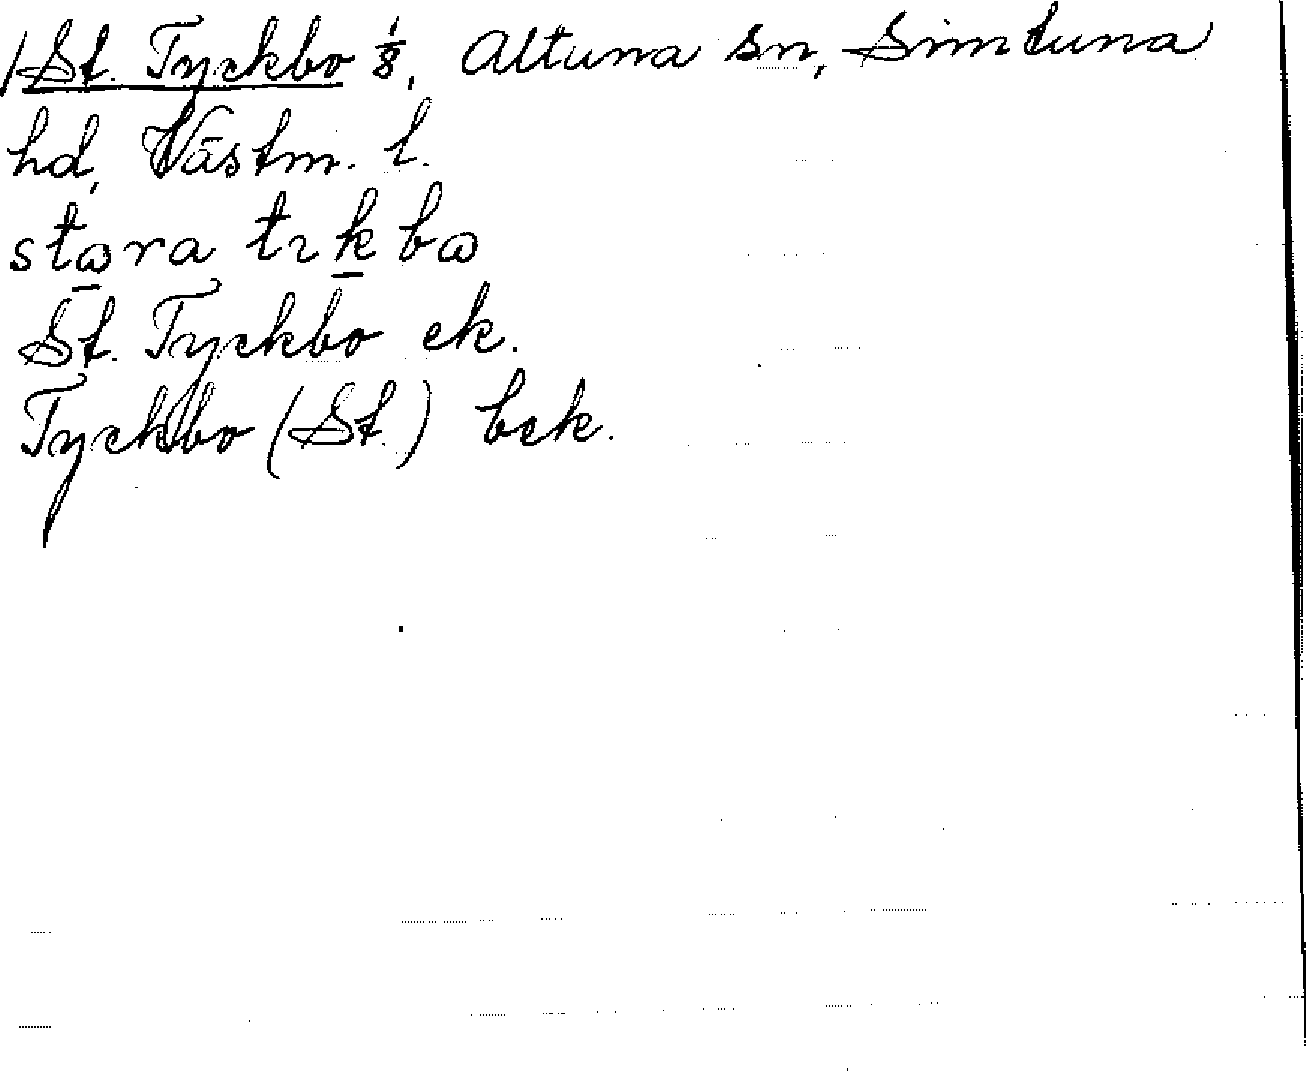 St. Tyckbo 1/8, Altuna sn, Simtuna
hd, Västm. l.
St. Tyckbo ek.
Tyckbo (St.) bek.